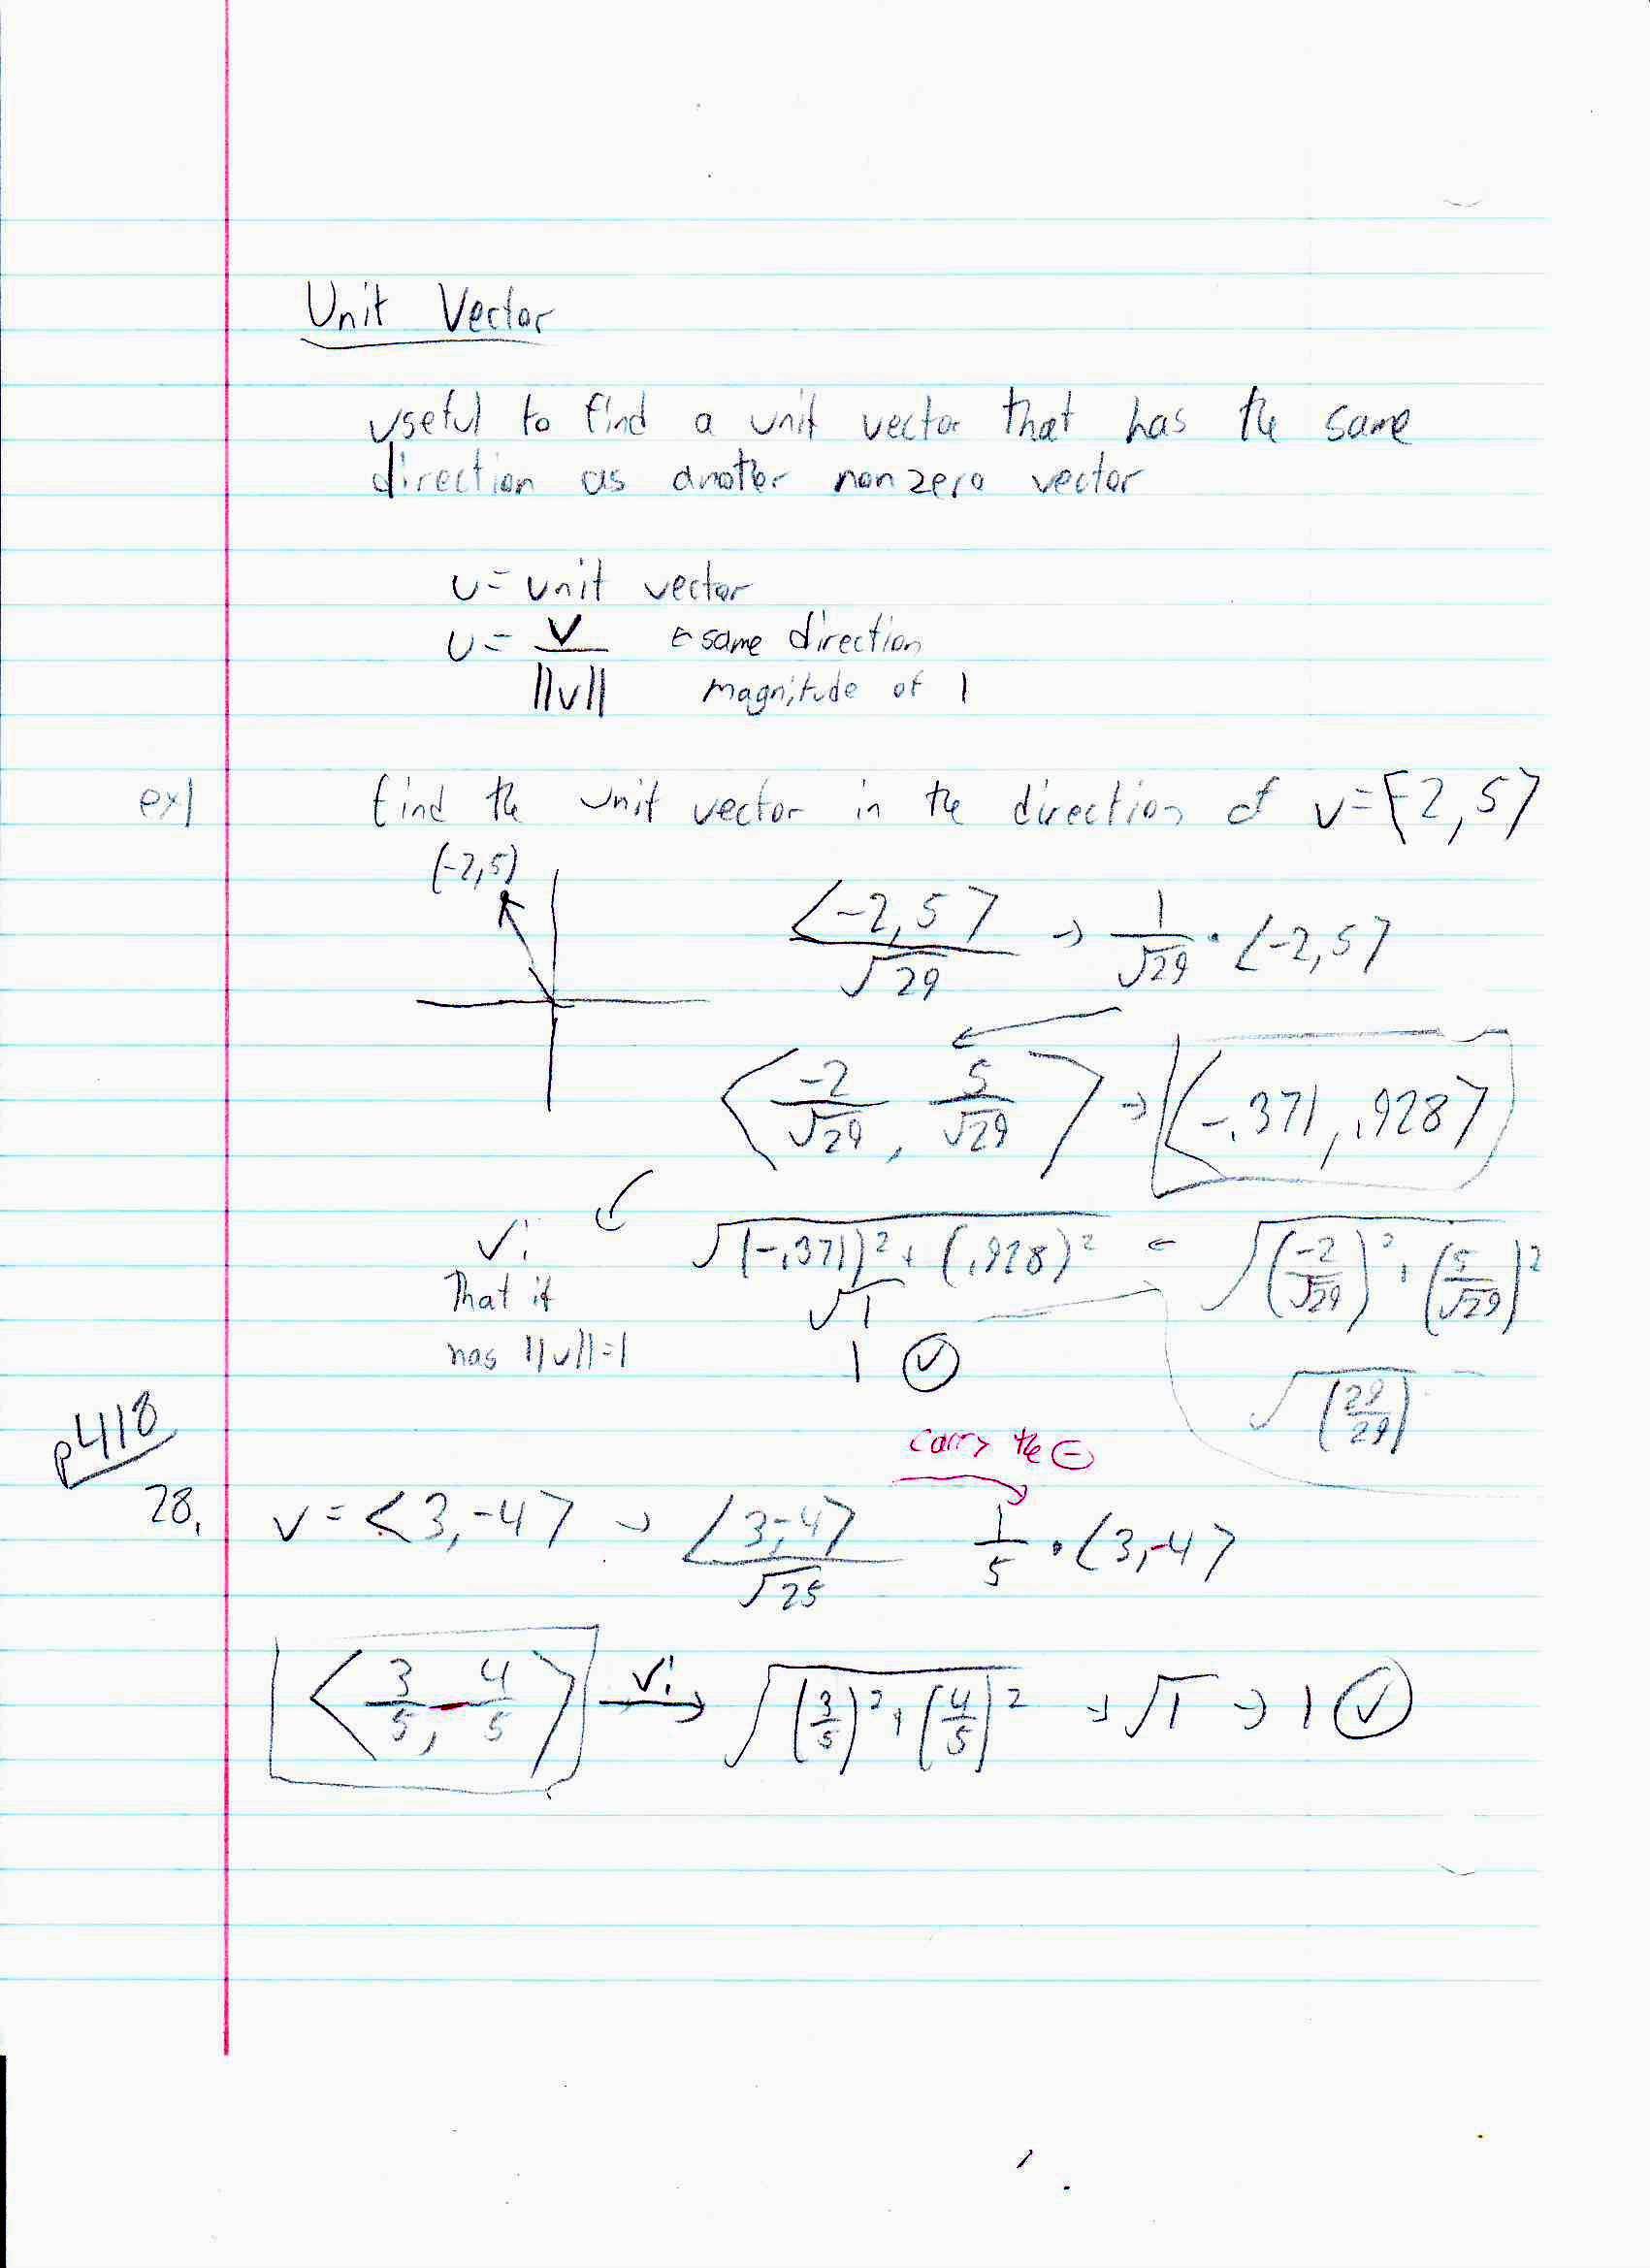 Unit Vector
useful to find a unit vector that has the same
direction as another nonzero vector
u = unit vector
u = v / ||v|| ← same direction
magnitude of 1
ex1 find the unit vector in the direction of v = ⟨-2, 5⟩
(-2,5)
⟨-2, 5⟩ / √29 → 1/√29 · ⟨-2, 5⟩
⟨-2/√29, 5/√29⟩ → ⟨-.371, .928⟩
√: √((-.371)² + (.928)²) ← √((-2/√29)² + (5/√29)²)
That it √1
has ||v||=1 1 ✓ √(29/29)
p418
carry the ⊖
28. v = ⟨3, -4⟩ → ⟨3, -4⟩ / √25 1/5 · ⟨3, -4⟩
⟨3/5, -4/5⟩ √: → √((3/5)² + (4/5)²) → √1 → 1 ✓